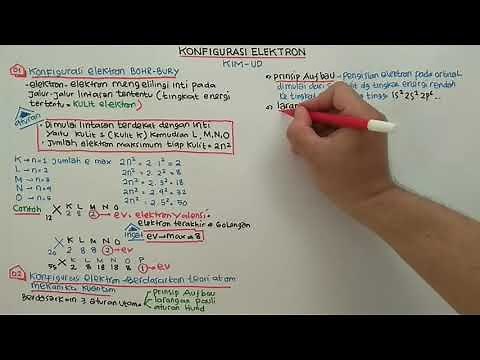 KONFIGURASI ELEKTRON
KIM-UD
01 Konfigurasi elektron BOHR-BURY
-elektron-elektron mengelilingi inti pada
jalur-jalur lintasan tertentu (tingkat energi
tertentu = kulit elektron)
aturan
• Dimulai lintasan terdekat dengan inti
yaitu kulit 1 (kulit K) kemudian L, M, N, O
• Jumlah elektron maksimum tiap kulit = 2n²
K → n=1 Jumlah e max 2n² = 2·1² = 2
L → n=2 2n² = 2·2² = 8
M → n=3 2n² = 2·3² = 18
N → n=4 2n² = 2·4² = 32
O → n=5 2n² = 2·5² = 50
Contoh
K L M N O
12 X 2 8 2 → ev = elektron valensi
elektron terakhir = Golongan
Ingat ev → max = 8
K L M N O
20 X 2 8 8 2 → ev
K L M N O P
55 X 2 8 18 18 8 1 → ev
02 Konfigurasi elektron Berdasarkan teori atom
mekanika kuantum
Berdasarkan 3 aturan utama
prinsip Aufbau
larangan pauli
aturan Hund
a) prinsip Aufbau - pengisian elektron pada orbital
dimulai dari tingkat energi rendah
ke tingkat tinggi 1s² 2s² 2p⁶...
b) laran